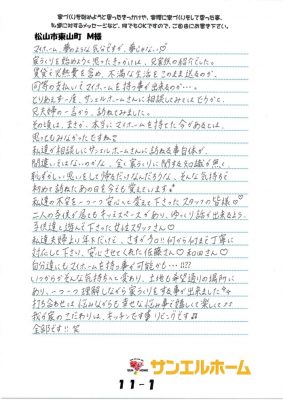 家づくりを始めようと思ったきっかけや、実際に家づくりをして思った事、
私達に対するメッセージなど、何でもOKですので、ご自由にお書き下さい。
松山市東山町 M様
マイホーム、夢のような気もですが、夢じゃない♡
家づくりを始めようと思ったきっかけは、兄家族の紹介でした。
賃貸で光熱費を含め、不満な生活をこのまま送るのか、
同等の支払いでマイホームを持つ事が出来るのか…。
とりあえず一度、サンエルホームさんに相談してみてはどうかと、
兄夫婦の一言から、訪ねてみました。
その頃は、まさか、本当にマイホームを持てた今があるとは、
思ってもみなかったですね
私達が相談しにサンエルホームさんに訪ねる事自体が、
間違いではないのかな、全く家づくりに関する知識が無く
恥ずかしい思いをして帰るだけなんだろうな、そんな気持ちで
初めて訪ねたあの日を今でも覚えています
私達の不安を一つ一つ安心へと変えて下さったスタッフの皆様♡
二人の子供が居てもキッズスペースがあり、ゆっくり話が出来るよう、
子供達と遊んで下さった女性スタッフさん♡
私達夫婦より年下だけど、さすがプロ!!何から何まで丁寧に
対応して下さり、安心させてくれた佐藤さん♡和田さん♡
自分達にもマイホームを持つ事が可能かも…!!??
いつからかそんな気持ちへと変わり、土地も希望通りの場所に
あり、一つ一つ理解しながら家づくりをする事が出来ました
打ち合わせは悩みながらも幸せな悩み事で嬉しくて楽しくて♪♪
我が家のこだわりは、キッチンです事、リビングです
全部です!!
サンエルホーム
11-1